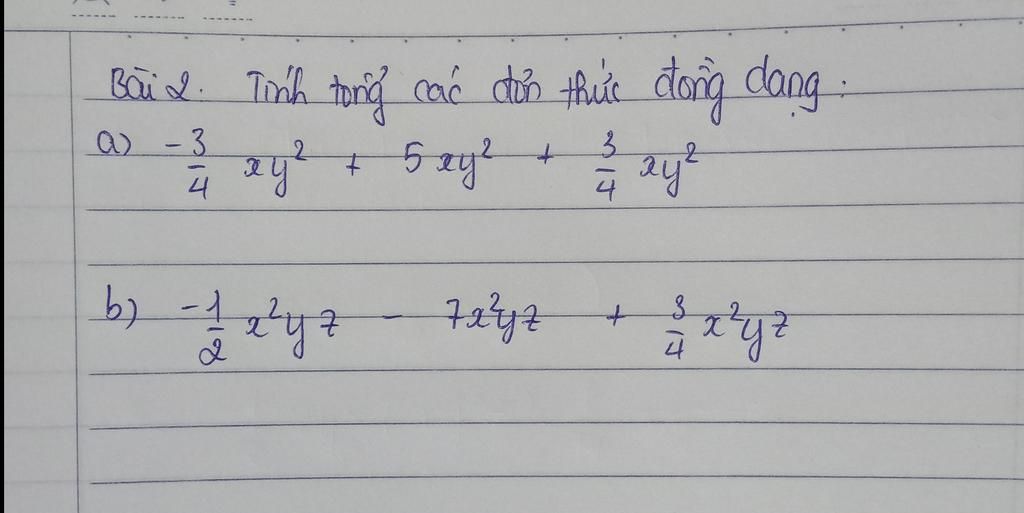 Bài 2. Tính tổng các đơn thức đồng dạng:
a) -3/4 xy² + 5xy² + 3/4 xy²
b) -1/2 x²yz - 7x²yz + 3/4 x²yz